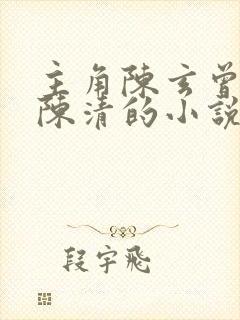 主角陳玄曾
陳清的小說
段宇飛